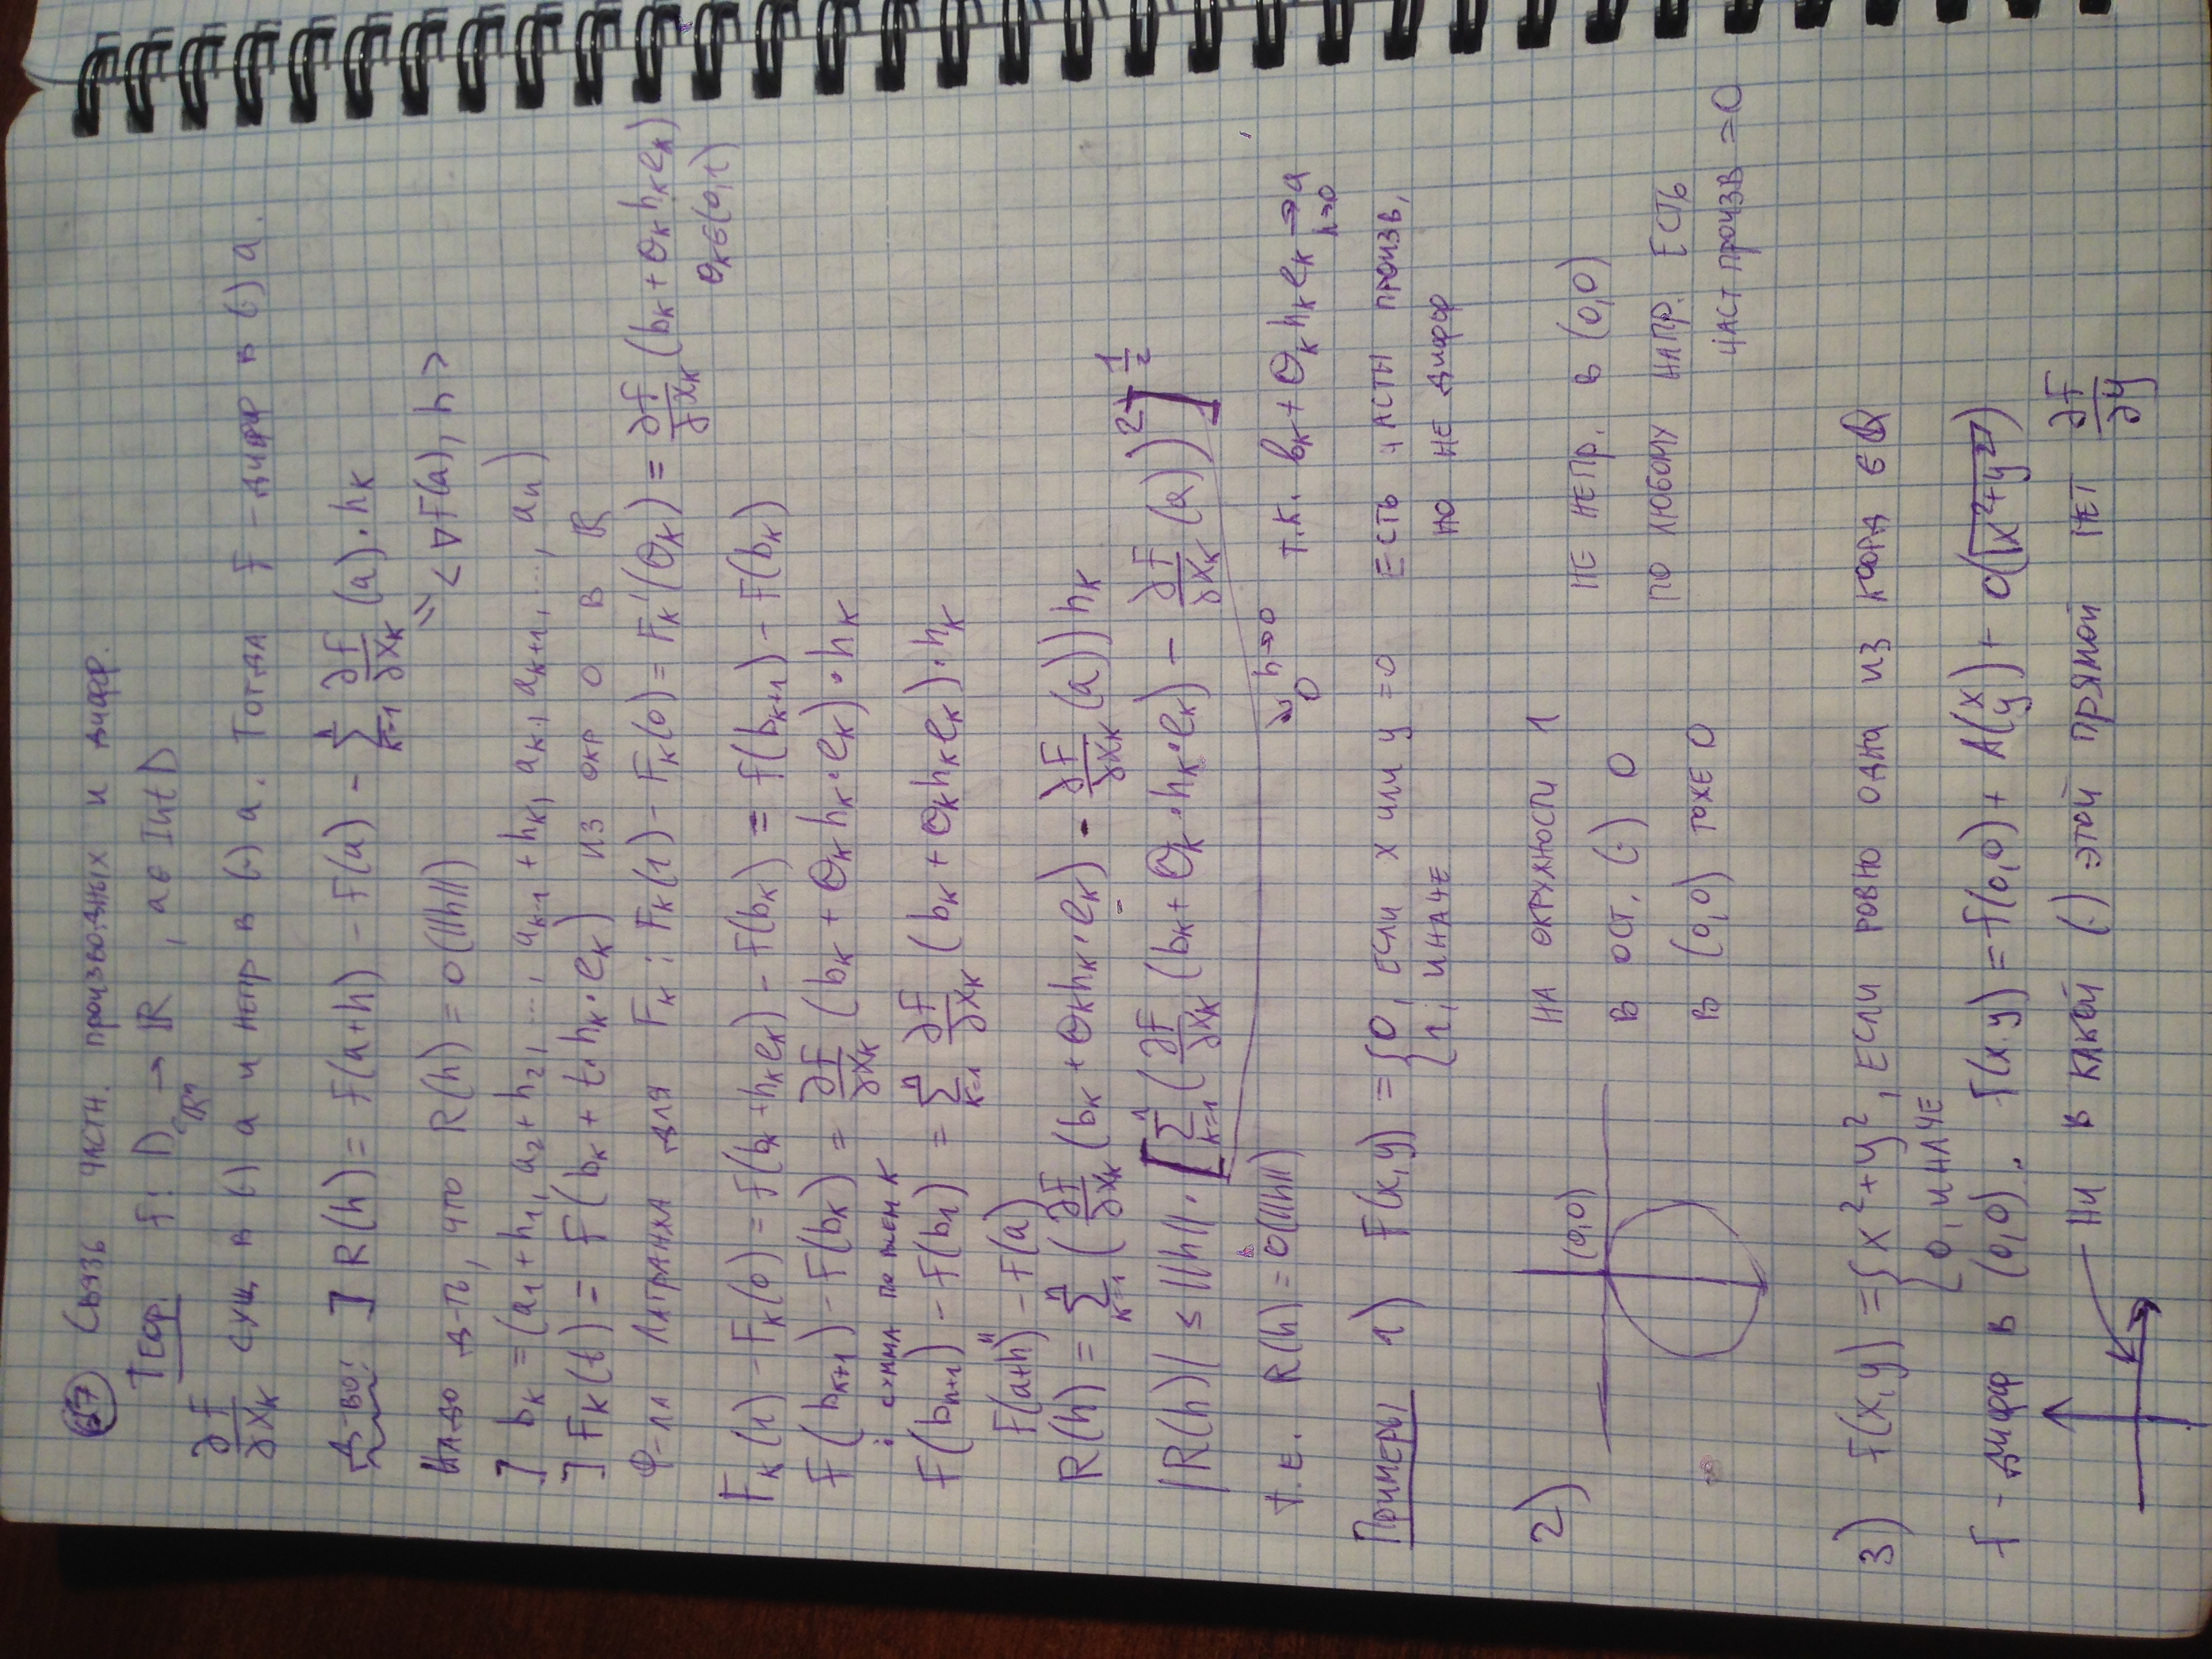 67 Связь частн. производных и дифф.
Теор. f: D → ℝ, a ∈ Int D
⊂ℝⁿ
∂f/∂x_k сущ в (·) a и непр в (·) a. Тогда f – дифф в (·) a.
Д-во: ] R(h) = f(a+h) – f(a) – ∑_{k=1}^{n} ∂f/∂x_k (a)·h_k
Надо д-ть, что R(h) = o(||h||) = <∇f(a), h>
] b_k = (a_1+h_1, a_2+h_2, ..., a_{k-1}+h_k, a_k, a_{k+1}, ..., a_n)
] F_k(t) = f(b_k + t·h_k·e_k) из окр 0 в ℝ
Ф-ла Лагранжа для F_k: F_k(1) – F_k(0) = F_k'(θ_k) = ∂f/∂x_k (b_k + θ_k h_k e_k)
θ_k ∈ (0,1)
F_k(1) – F_k(0) = f(b_k + h_k e_k) – f(b_k) = f(b_{k+1}) – f(b_k)
f(b_{k+1}) – f(b_k) = ∂f/∂x_k (b_k + θ_k h_k·e_k)·h_k
: сумма по всем k
f(b_{n+1}) – f(b_1) = ∑_{k=1}^{n} ∂f/∂x_k (b_k + θ_k h_k e_k)·h_k
"
f(a+h) – f(a)
R(h) = ∑_{k=1}^{n} (∂f/∂x_k (b_k + θ_k h_k·e_k) – ∂f/∂x_k (a)) h_k
|R(h)| ≤ ||h||·[∑_{k=1}^{n} (∂f/∂x_k (b_k + θ_k·h_k·e_k) – ∂f/∂x_k (a))²]^{1/2}
т.е. R(h) = o(||h||) h→0 0 т.к. b_k + θ_k h_k e_k →_{h→0} a
Примеры 1) f(x,y) = { 0, если x или y = 0 есть частн произв,
1, иначе но не дифф
2) (0,0) на окружности 1
не непр. в (0,0)
в ост. (·) 0
по любому напр. есть
в (0,0) тоже 0
част произв = 0
3) f(x,y) = { x²+y², если ровно одна из коорд ∈ ℚ
0, иначе
f – дифф в (0,0). f(x,y) = f(0,0) + A(x y) + o(√(x²+y²))
Ни в какой (·) этой прямой нет ∂f/∂y